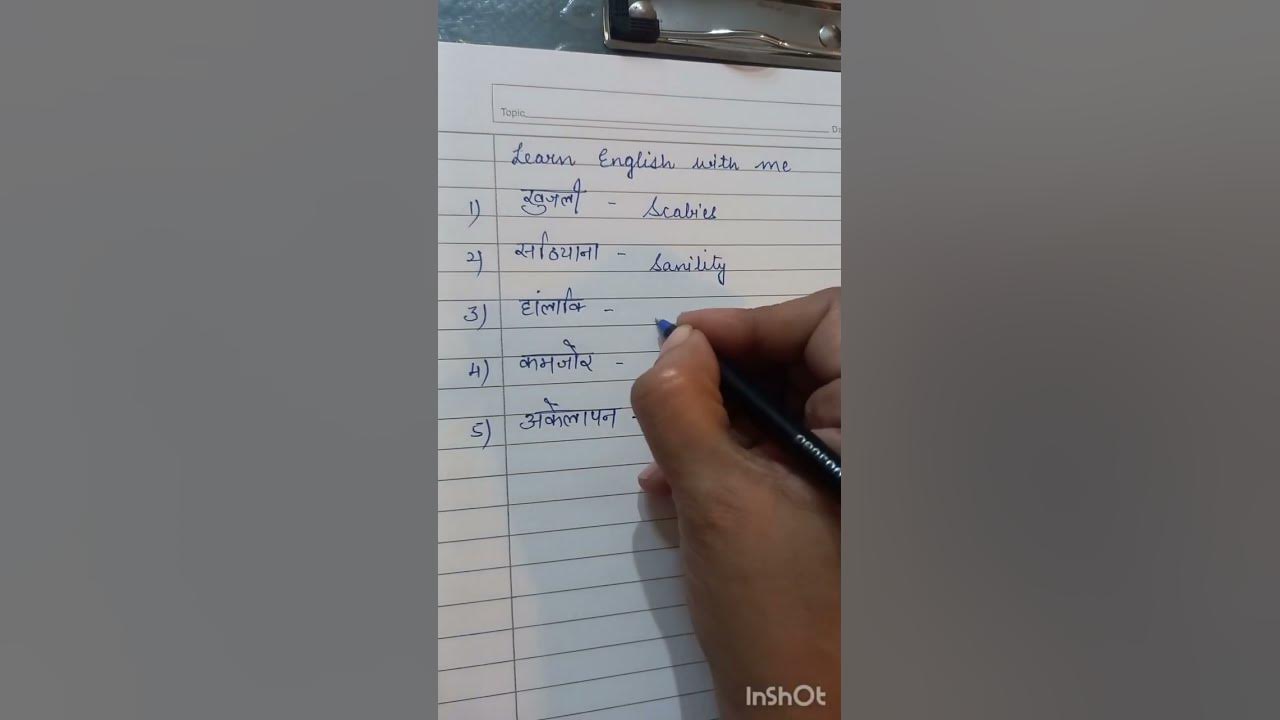 Topic
Da
Learn English with me
1) खुजली - Scabies
2) सठियाना - Sanility
3) हांलाकि -
4) कमजोर -
5) अकेलापन -
InShOt